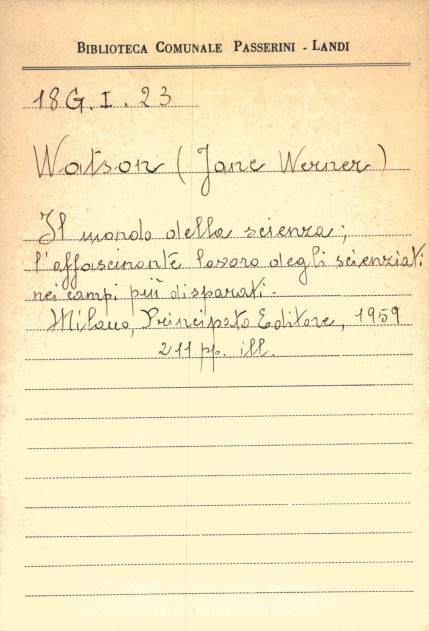 BIBLIOTECA COMUNALE PASSERINI - LANDI
18 G. I. 23
Watson (Jane Werner)
Il mondo della scienza;
l'affascinante lavoro degli scienziati
nei campi più disparati.
Milano, Principato Editore, 1959
211 pp. ill.